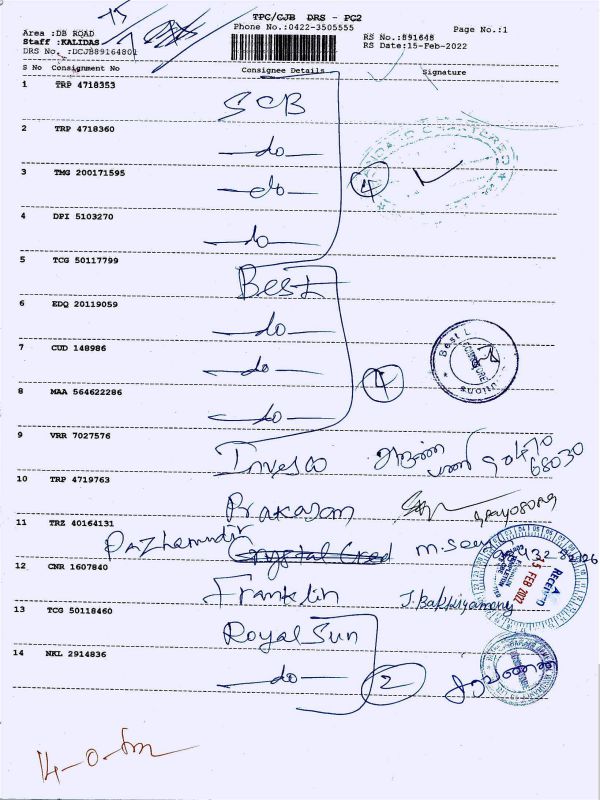 15
TPC/CJB DRS - PC2
Phone No.:0422-3505555
Page No.:1
Area :DB ROAD
Staff :KALIDAS
DRS No. :DCJB89164801
RS No.:891648
RS Date:15-Feb-2022
S No Consignment No Consignee Details Signature
1 TRP 4718353
SCB
2 TRP 4718360
-do-
3 TMG 200171595
-do-
4
4 DPI 5103270
-do-
5 TCG 50117799
Best
6 EDQ 20119059
-do-
7 CUD 148986
-do-
Best
8 MAA 564622286
4
-do-
9 VRR 7027576
Invesco
90470
68030
10 TRP 4719763
Prakasam
11 TRZ 40164131
Pazhamudir Crystal Cred
12 CNR 1607840
Franklin
RECEIVED
15 FEB 2022
13 TCG 50118460
Royal Sun
14 NKL 2914836
-do-
2
14-0-